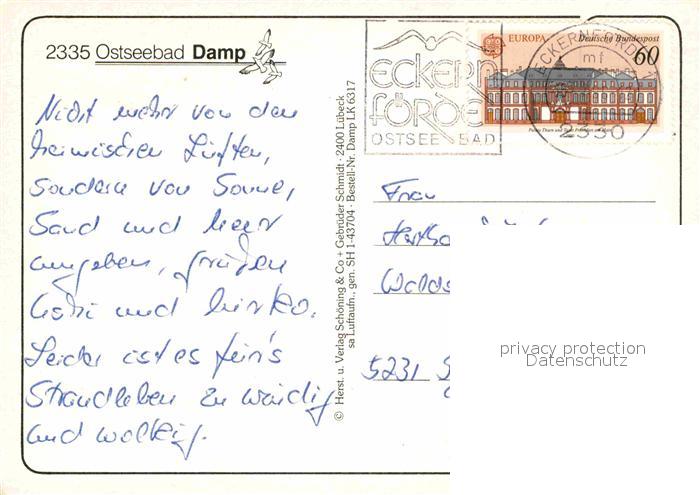 2335 Ostseebad Damp
Nicht mehr von den
heimischen Lüften,
sondern von Sonne,
Sand und Meer
umgeben, grüßen
und Mirko.
Leider ist es für's
Strandleben zu windig
und wolkig.
© Herst. u. Verlag Schöning & Co + Gebrüder Schmidt · 2400 Lübeck
sa Luftaufn., gen. SH 1-43704 · Bestell-Nr. Damp LK 6317
ECKERN
FÖRDE
OSTSEE BAD
EUROPA Deutsche Bundespost
60
ECKERNFÖRDE
mf
2330
Frau
5231
privacy protection
Datenschutz